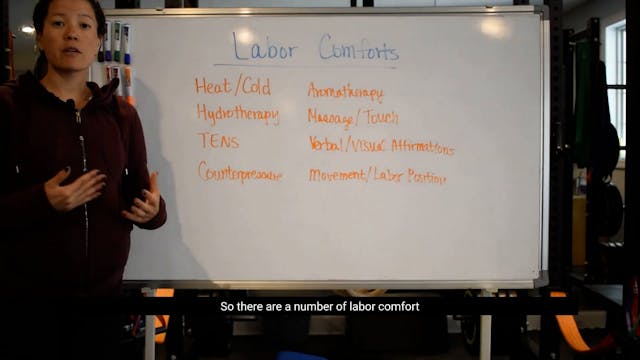 Labor Comforts
Heat/Cold
Hydrotherapy
TENS
Counterpressure
Aromatherapy
Massage/Touch
Verbal/Visual Affirmations
Movement/Labor Position
So there are a number of labor comfort